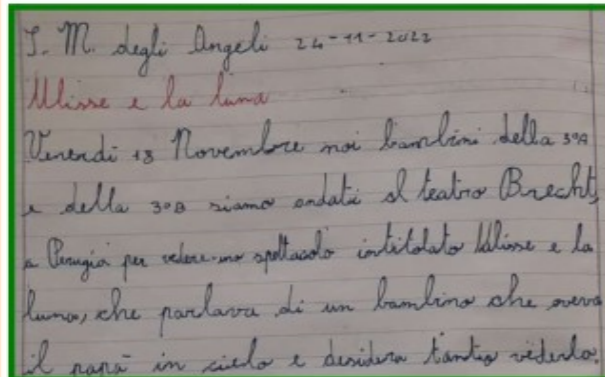 S. M. degli Angeli 24-11-2022
Ulisse e la luna
Venerdì 18 Novembre noi bambini della 3°A
e della 3°B siamo andati al teatro Brecht,
a Perugia per vedere uno spettacolo intitolato Ulisse e la
luna, che parlava di un bambino che aveva
il papà in cielo e desidera tanto vederlo.